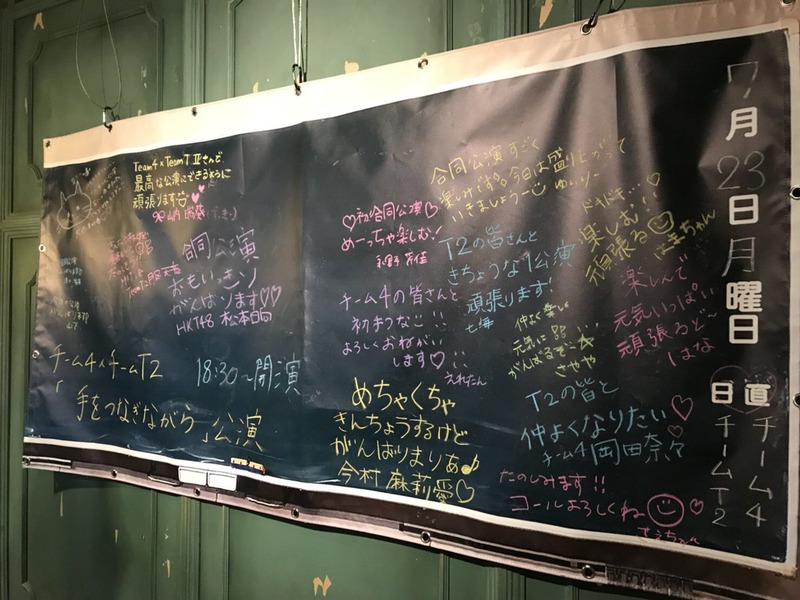 7月23日月曜日
日直
チーム4
チームT2
合同公演すごく
楽しみです。今日は盛り上がって
いきましょうー
ドキドキ…♡
楽しむ!
頑張る
楽しんで
元気いっぱい
頑張るど〜
はな
T2の皆さんと
きちょうな1公演
頑張ります!
七海
仲よく楽しく
元気に
がんばるぞ〜☆
さやや
T2の皆と
仲よくなりたい♡
チーム4岡田奈々
たのしみます!!
コールよろしくね
♡初合同公演♡
めーっちゃ楽しむ!
チーム4の皆さんと
初まつなこ!!
よろしくおねがい
します♡
えれたん
めちゃくちゃ
きんちょうするけど
がんばりまりあ♪
今村麻莉愛♡
Team4×TeamTⅡさんで
最高な公演にできるように
頑張ります
合同公演
おもいっきり
がんばります♡♡
HKT48 松本日向
チーム4×チームT2
18:30〜開演
「手をつなぎながら」公演